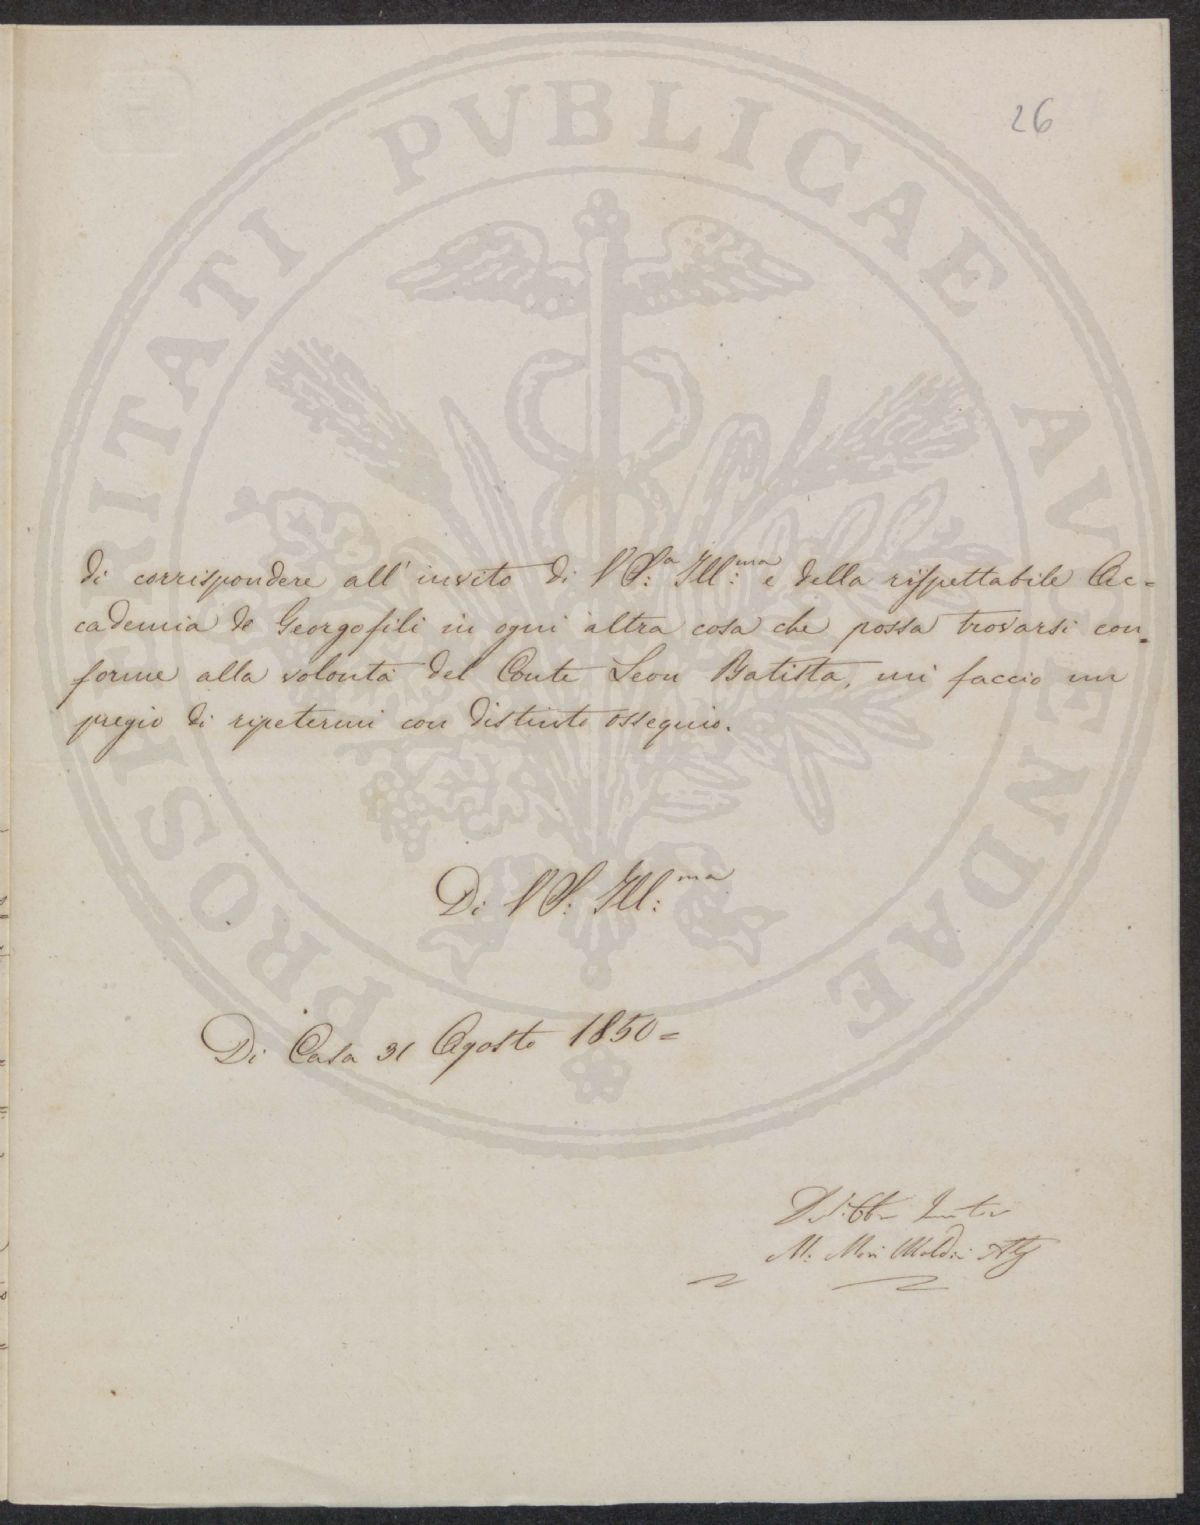 PROSPERITATI PVBLICAE AVGENDAE
26
di corrispondere all' invito di V S:a Ill:ma e della rispettabile Ac=
cademia de Georgofili in ogni altra cosa che possa trovarsi con=
forme alla volontà del Conte Leon Batista, mi faccio un
pregio di ripetermi con distinto ossequio.
Di V S: Ill:ma
Di Casa 31 Agosto 1850=
M: